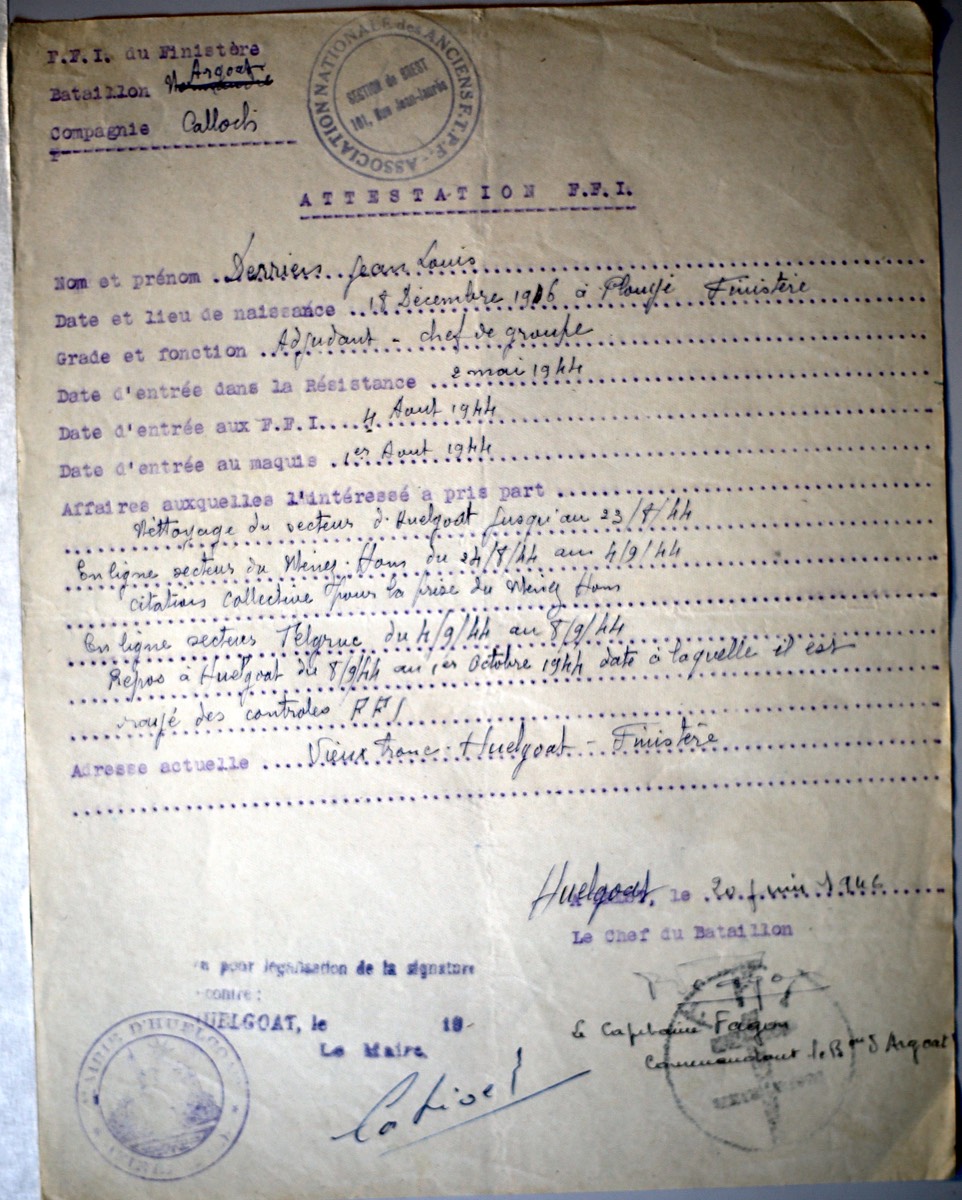 F.F.I. du Finistère
Argoat
Bataillon
Compagnie Calloch
ASSOCIATION NATIONALE des ANCIENS F.T.P.F.
SECTION de BREST
101, Rue Jean-Jaurès
ATTESTATION F.F.I.
Nom et prénom Derrien Jean Louis
Date et lieu de naissance 18 Décembre 1916 à Plouyé Finistère
Grade et fonction Adjudant - chef de groupe
Date d'entrée dans la Résistance 2 mai 1944
Date d'entrée aux F.F.I. 4 Aout 1944
Date d'entrée au maquis 1er Aout 1944
Affaires auxquelles l'intéressé a pris part
Nettoyage du secteur d'Huelgoat jusqu'au 23/8/44
En ligne secteur du Menez-Hom du 24/8/44 au 4/9/44
citation collective pour la prise du Menez Hom
En ligne secteur Telgruc du 4/9/44 au 8/9/44
Repos à Huelgoat du 8/9/44 au 1er Octobre 1944 date à laquelle il est
rayé des controles FFI
Adresse actuelle Vieux tronc - Huelgoat - Finistère
Huelgoat, le 20 1946
Le Chef du Bataillon
pour légalisation de la signature
contre :
HUELGOAT, le 19
Le Maire,
MAIRIE D'HUELGOAT
Le Capitaine Fagon
Commandant le Bon d'Argoat